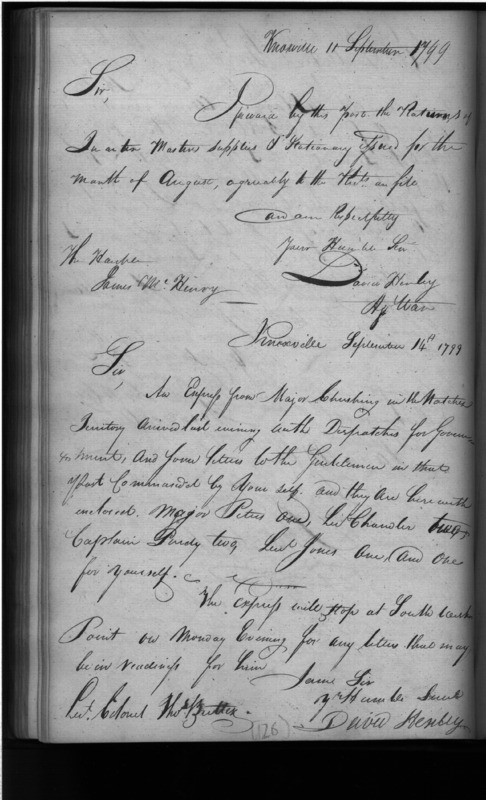 Knoxville 11 September 1799
Sir,
I forward by this post the Returns of
Quarter Masters supplies & Stationary issued for the
Month of August, agreeably to the Rects. on file
and am Respectfully
Your Humble Sir
David Henley
Agt War
The Honble
James McHenry
Knoxville September 14th 1799
Sir,
An Express from Major Cushing in the Natches
Territory arrived last evening with Dispatches for Govern-
ment, and some letters to the Gentlemen in that
post Commanded by Your self. and they are herewith
inclosed. Major Peters one, Lieut Chandler two,
Captain Purdy two Lieut Jones one, and one
for yourself.
The express will stop at South west
Point on Monday Evening for any letters that may
be in readiness for him
I am Sir
Yr Humble Servt
David Henley
Lt. Colonel Thos. Butler.
(126)